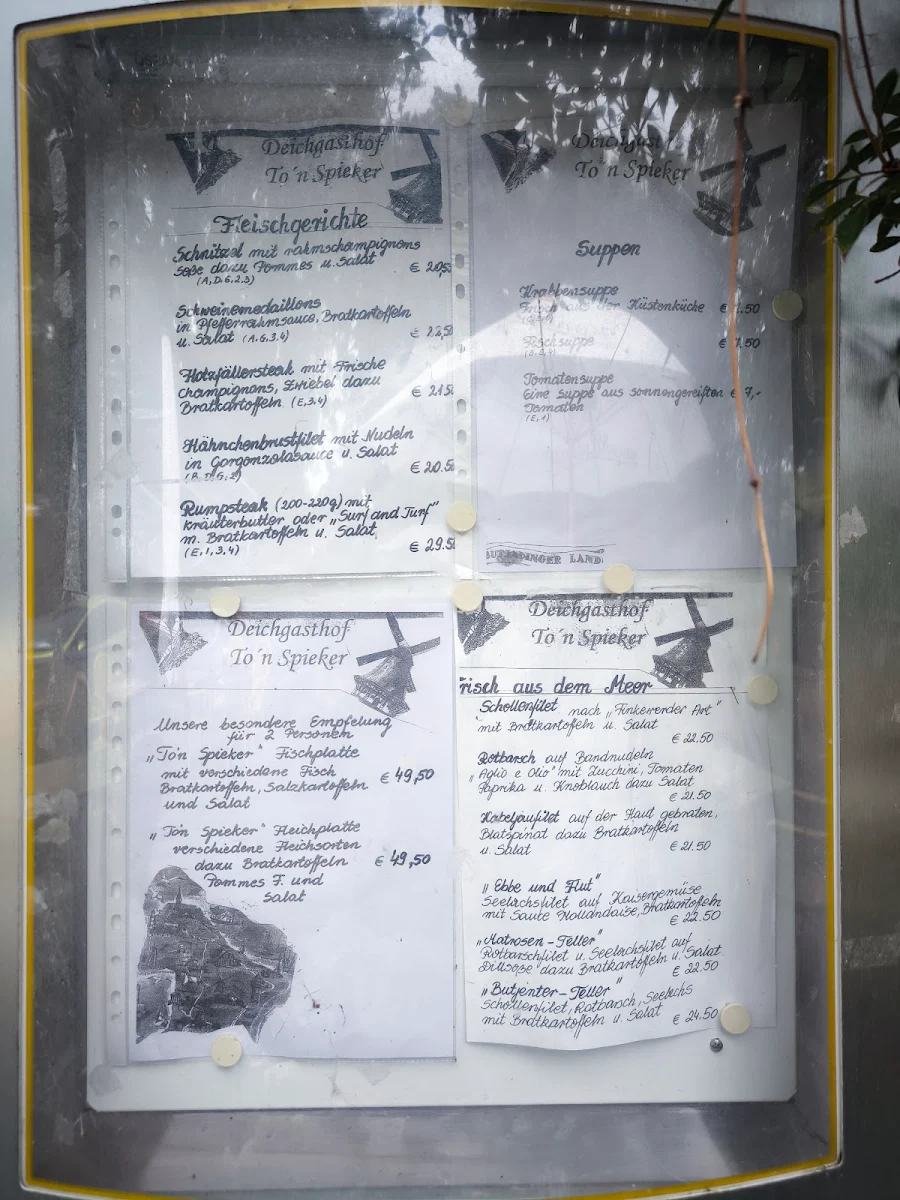 Deichgasthof
To´n Spieker
Fleischgerichte
Schnitzel mit rahmchampignons
Soße dazu Pommes u. Salat
(A,D,G,2,3)
€ 20,50
Schweinemedaillons
in Pfefferrahmsauce, Bratkartoffeln
u. Salat (A,G,3,4)
€ 22,50
Holzfällersteak mit Frische
champignons, Zwiebel dazu
Bratkartoffeln (E,3,4)
€ 21.50
Hähnchenbrustfilet mit Nudeln
in Gorgonzolasauce u. Salat
€ 20.50
Rumpsteak (200-220g) mit
kräuterbutter oder „Surf and Turf"
m. Bratkartoffeln u. Salat
(E,1,3,4)
€ 29.50
Deichgast
To´n Spieker
Suppen
Krabbensuppe
Frisch aus der Küstenküche € .50
Fischsuppe € .50
Tomatensuppe
Eine suppe aus sonnengereiften € 7,-
Tomaten
(E,1)
BUTJADINGER LAND
Deichgasthof
To´n Spieker
Unsere besondere Empfelung
für 2 Personen
„To'n Spieker" Fischplatte
mit verschiedene Fisch € 49,50
Bratkartoffeln, Salzkartoffeln
und Salat
„Ton Spieker" Fleichplatte
verschiedene Fleichsorten
dazu Bratkartoffeln € 49,50
Pommes F. und
Salat
Deichgasthof
To´n Spieker
risch aus dem Meer
Schollenfilet nach „Finkenwerder Art"
mit Bratkartoffeln u. Salat
€ 22.50
Rotbarsch auf Bandnudeln
„Aglio e Olio" mit Zucchini, Tomaten
Paprika u. Knoblauch dazu Salat
€ 21.50
Kabeljaufilet auf der Haut gebraten,
Blatspinat dazu Bratkartoffeln
u. Salat € 21.50
„Ebbe und Flut"
Seelachsfilet auf Kaisergemüse
mit Sauce Hollandaise, Bratkartoffeln
€ 22.50
„Matrosen-Teller"
Rotbarschfilet u. Seelachsfilet auf
Dillsoße dazu Bratkartoffeln u. Salat
€ 22.50
„Butjenter-Teller"
Schollenfilet, Rotbarsch, Seelachs
mit Bratkartoffeln u. Salat € 24.50